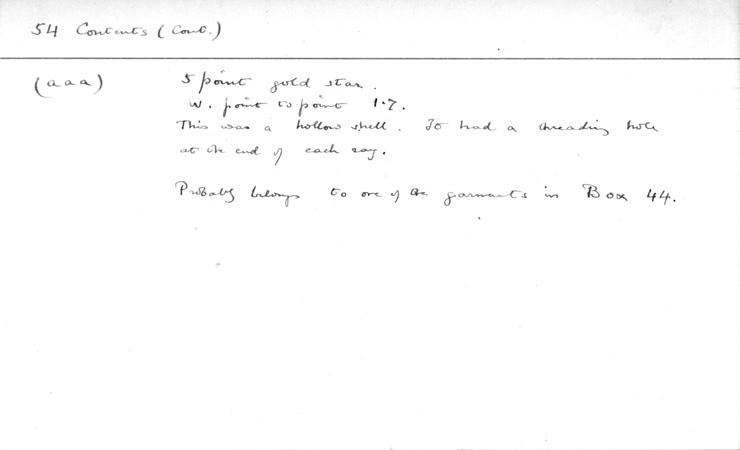 54 Contents (Cont.)
(aaa) 5 point gold star.
W. point to point 1.7.
This was a hollow shell. It had a threading hole
at the end of each ray.
Probably belongs to one of the garments in Box 44.